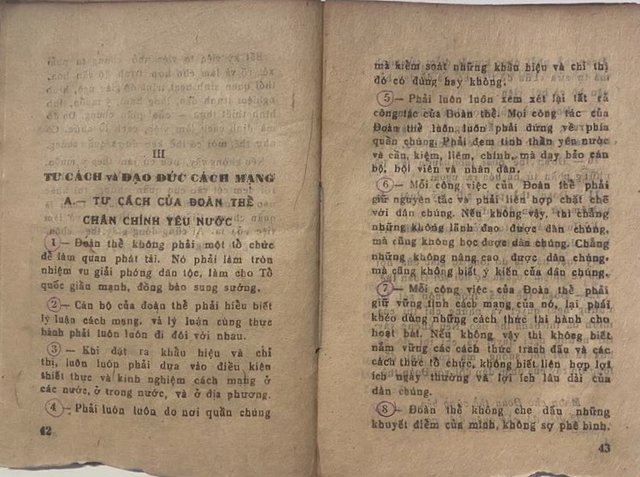 III
TƯ CÁCH và ĐẠO ĐỨC CÁCH MẠNG
A. — TƯ CÁCH CỦA ĐOÀN THỂ
CHÂN CHÍNH YÊU NƯỚC
1 — Đoàn thể không phải một tổ chức
để làm quan phát tài. Nó phải làm tròn
nhiệm vụ giải phóng dân tộc, làm cho Tổ
quốc giầu mạnh, đồng bào sung sướng.
2 — Cán bộ của đoàn thể phải hiểu biết
lý luận cách mạng, và lý luận cùng thực
hành phải luôn luôn đi đôi với nhau.
3 — Khi đặt ra khẩu hiệu và chỉ
thị, luôn luôn phải dựa vào điều kiện
thiết thực và kinh nghiệm cách mạng ở
các nước, ở trong nước, và ở địa phương.
4 — Phải luôn luôn do nơi quần chúng
42
mà kiểm soát những khẩu hiệu và chỉ thị
đó có đúng hay không.
5 — Phải luôn luôn xem xét lại tất cả
công tác của Đoàn thể. Mọi công tác của
Đoàn thể luôn luôn phải đứng về phía
quần chúng. Phải đem tinh thần yêu nước
và cần, kiệm, liêm, chính, mà dạy bảo cán
bộ, hội viên và nhân dân.
6 — Mỗi công việc của Đoàn thể phải
giữ nguyên tắc và phải liên hợp chặt chẽ
với dân chúng. Nếu không vậy, thì chẳng
những không lãnh đạo được dân chúng,
mà cũng không học được dân chúng. Chẳng
những không nâng cao được dân chúng,
mà cũng không biết ý kiến của dân chúng.
7 — Mỗi công việc của Đoàn thể phải
giữ vững tính cách mạng của nó, lại phải
khéo dùng những cách thức thi hành cho
hoạt bát. Nếu không vậy thì không biết
nắm vững các cách thức tranh đấu và các
cách thức tổ chức, không biết liên hợp lợi
ích ngày thường và lợi ích lâu dài của
dân chúng.
8 — Đoàn thể không che dấu những
khuyết điểm của mình, không sợ phê bình.
43